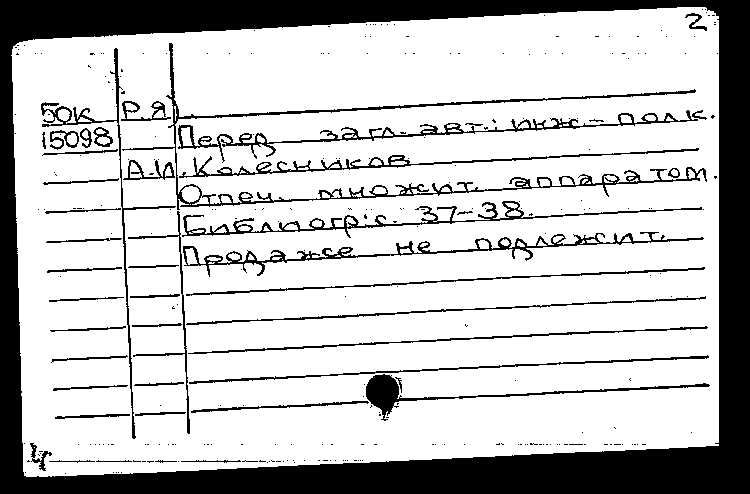 2
50к Р.Я).
15098 Перед загл. авт.: инж-полк.
А.И. Колесников
Отпеч. множит. аппаратом.
Библиогр: с. 37-38.
Продаже не подлежит.